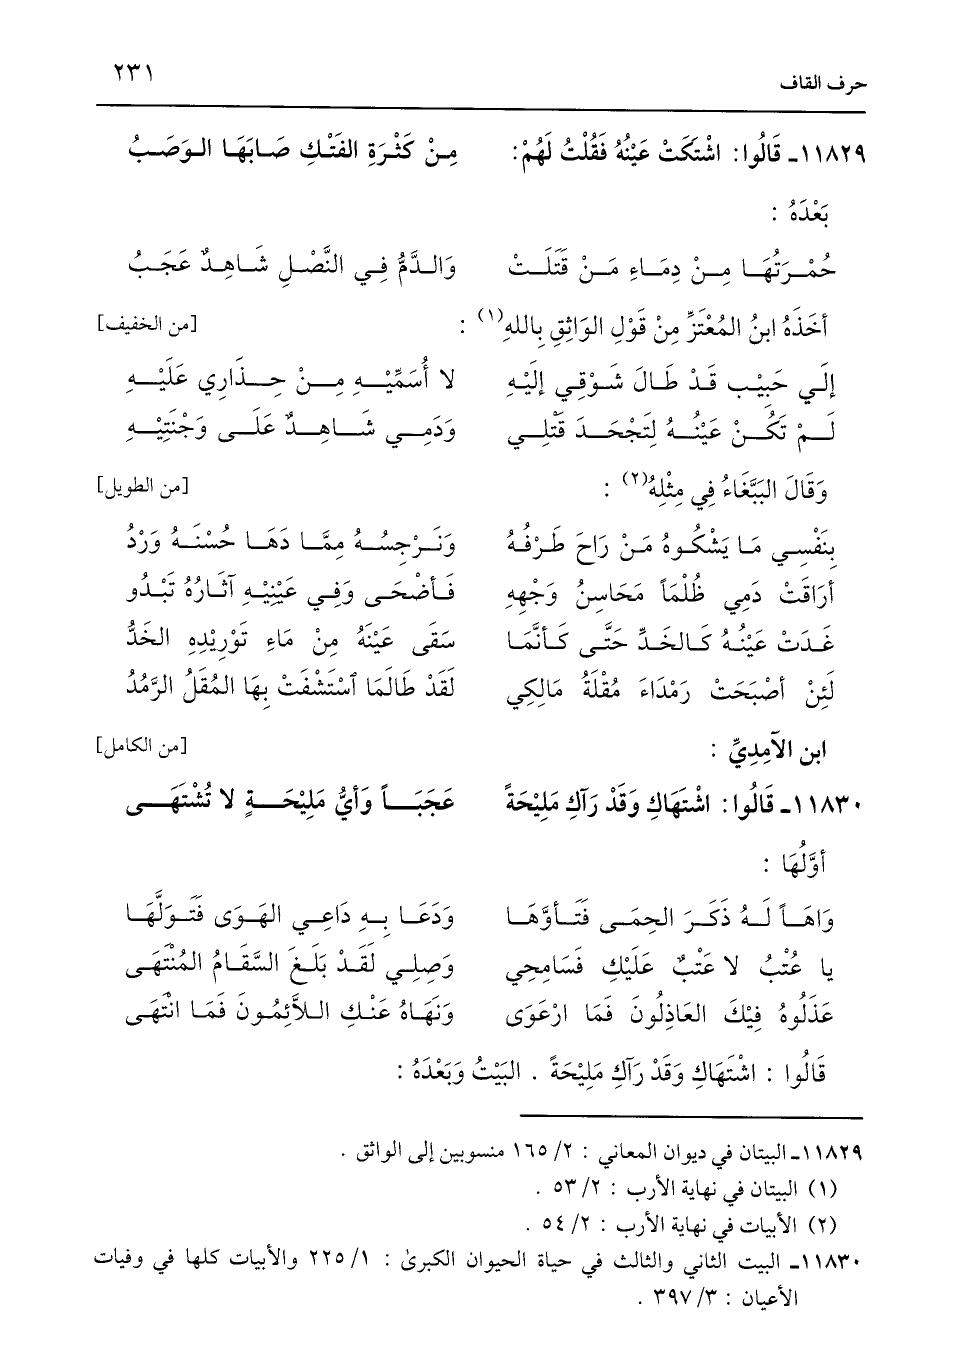 حرف القاف ٢٣١
١١٨٢٩ـ قَالُوا: اشْتَكَتْ عَيْنُهُ فَقُلْتُ لَهُمْ: مِنْ كَثْرَةِ الفَتْكِ صَابَهَا الوَصَبُ
بَعْدَهُ :
حُمْرَتُهَا مِنْ دِمَاءِ مَنْ قَتَلَتْ وَالدَّمُّ فِي النَّصْلِ شَاهِدٌ عَجَبُ
أخَذَهُ ابنُ المُعْتَزِّ مِنْ قَوْلِ الوَاثِقِ بِاللهِ(١) : [من الخفيف]
إلَي حَبِيْب قَدْ طَالَ شَوْقِي إلَيْهِ لا أُسَمِّيْهِ مِنْ حِذَارِي عَلَيْهِ
لَمْ تَكُنْ عَيْنُهُ لِتَجْحَدَ قَتْلِي وَدَمِي شَاهِدٌ عَلَى وَجْنَتِيْهِ
وَقَالَ البَبَّغَاءُ فِي مِثْلِهُ(٢) : [من الطويل]
بِنَفْسِي مَا يَشْكُوهُ مَنْ رَاحَ طَرْفُهُ وَنَرْجِسُهُ مِمَّا دَهَا حُسْنَهُ وَرْدُ
أرَاقَتْ دَمِي ظُلْمَاً مَحَاسِنُ وَجْهِهِ فَأضْحَى وَفِي عَيْنِيْهِ آثَارُهُ تَبْدُو
غَدَتْ عَيْنُهُ كَالخَدِّ حَتَّى كَأنَّمَا سَقَى عَيْنَهُ مِنْ مَاءِ تَوْرِيْدِهِ الخَدُّ
لَئِنْ أصْبَحَتْ رَمْدَاءَ مُقْلَةُ مَالِكِي لَقَدْ طَالَمَا اسْتَشْفَتْ بِهَا المُقَلُ الرَّمْدُ
ابن الآمِدِيِّ : [من الكامل]
١١٨٣٠ـ قَالُوا: اشْتَهَاكِ وَقَدْ رَآكِ مَلِيْحَةً عَجَبَاً وَأيُّ مَلِيْحَةٍ لا تُشْتَهَى
أوَّلُهَا :
وَاهَاً لَهُ ذَكَرَ الحِمَى فَتَأوَّهَا وَدَعَا بِهِ دَاعِي الهَوَى فَتَولَّهَا
يا عُتْبُ لا عَتْبٌ عَلَيْكِ فَسَامِحِي وَصِلِي لَقَدْ بَلَغَ السَّقَامُ المُنْتَهَى
عَذَلُوهُ فِيْكَ العَاذِلُونَ فَمَا ازْعَوَى وَنَهَاهُ عَنْكِ اللاَّئِمُونَ فَمَا انْتَهَى
قَالُوا : اشْتَهَاكِ وَقَدْ رَآكِ مَلِيْحَةً . البَيْتُ وَبَعْدَهُ :
١١٨٢٩ـ البيتان في ديوان المعاني : ٢/ ١٦٥ منسوبين إلى الواثق .
(١) البيتان في نهاية الأرب : ٢/ ٥٣ .
(٢) الأبيات في نهاية الأرب : ٢/ ٥٤ .
١١٨٣٠ـ البيت الثاني والثالث في حياة الحيوان الكبرىٰ : ١/ ٢٢٥ والأبيات كلها في وفيات
الأعيان : ٣/ ٣٩٧ .